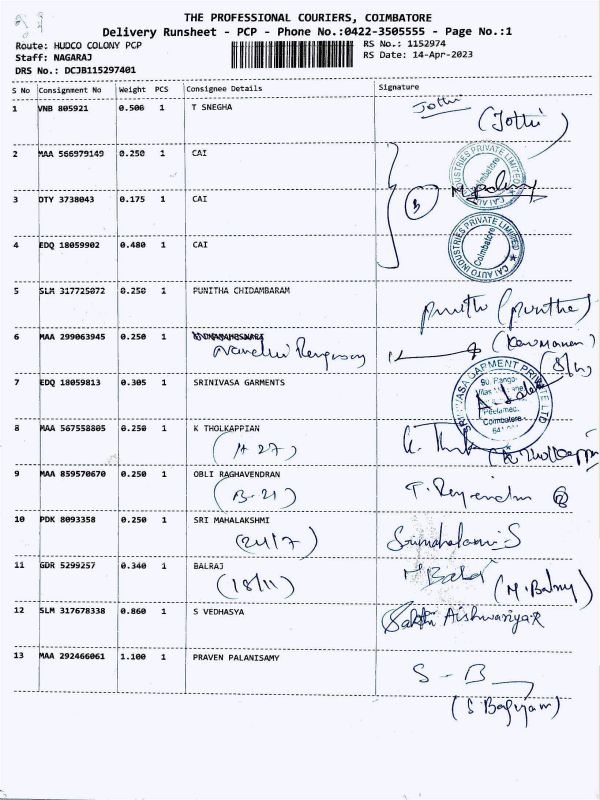 THE PROFESSIONAL COURIERS, COIMBATORE
Delivery Runsheet - PCP - Phone No.:0422-3505555 - Page No.:1
Route: HUDCO COLONY PCP
RS No.: 1152974
Staff: NAGARAJ
RS Date: 14-Apr-2023
DRS No.: DCJB115297401
S No Consignment No Weight PCS Consignee Details Signature
1 VNB 805921 0.500 1 T SNEGHA Jothi
(Jothi)
2 MAA 566979149 0.250 1 CAI
CAI AUTO INDUSTRIES PRIVATE LIMITED Coimbatore
3 DTY 3738043 0.175 1 CAI
3
4 EDQ 18059902 0.480 1 CAI
CAI AUTO INDUSTRIES PRIVATE LIMITED Coimbatore
5 SLM 317725072 0.250 1 PUNITHA CHIDAMBARAM
6 MAA 299063945 0.250 1
7 EDQ 18059813 0.305 1 SRINIVASA GARMENTS
SRINIVASA GARMENT PRIVATE LTD
Coimbatore
8 MAA 567558805 0.250 1 K THOLKAPPIAN
(A 27)
9 MAA 859570670 0.250 1 OBLI RAGHAVENDRAN
(B-21)
10 PDK 8093358 0.250 1 SRI MAHALAKSHMI
(24/7)
Srimahalaxmi-S
11 GDR 5299257 0.340 1 BALRAJ
(18/11)
12 SLM 317678338 0.860 1 S VEDHASYA
Sakthi Aishwariya.R
13 MAA 292466061 1.100 1 PRAVEN PALANISAMY
S - B
(S Bagyam)